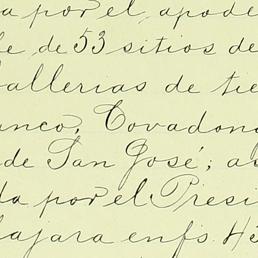 a por el apode
fe de 53 sitios de
ballerias de tie
anco, Covadong
de San José; as
da por el Presi
lajara en fs. 43